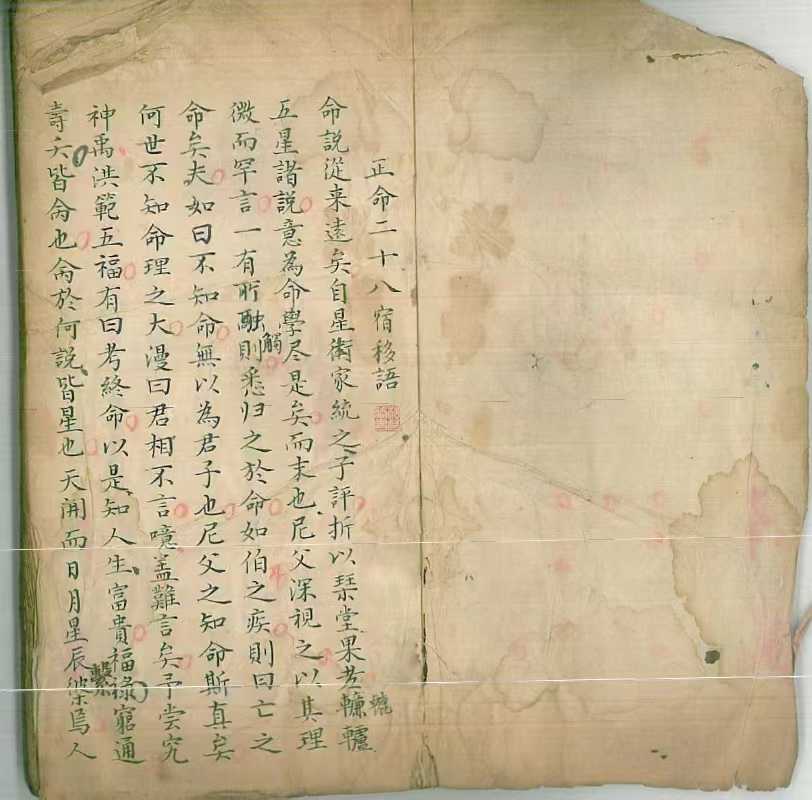 正命二十八宿移語
命說從来遠矣自星術家統之子評折以琹堂果老轆轤
五星諸説意為命學尽是矣而末也尼父深視之以其理
微而罕言一有所融則悉归之於命如伯之疾則曰亡之
觸
命矣夫如曰不知命無以為君子也尼父之知命斯真矣
何世不知命理之大漫曰君相不言噫盖難言矣予尝究
神禹洪範五福有曰考終命以是知人生富貴福禄窮通
壽夭皆命也命於何説皆星也天開而日月星辰燦焉人
繫